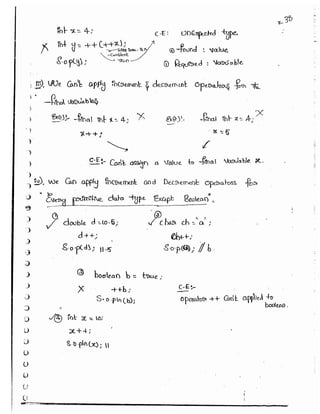 30
int x = 4;
C.E: unexpected type.
X int y = ++(++x);
① found : value
S.o.p(y);
② Required : Variable
we Can't apply increment & decrement operators for the
final variables
Ex(1):- final int x = 4; X
Ex(2):- final int x = 4; X
x++;
x = 5
C.E:- Can't assign a value to final variable x.
we Can apply increment and Decrement operators for
"Every primitive data type Except Boolean".
① double d = 10.5;
② char ch = 'a';
d++;
ch++;
S.o.p(d); 11.5
S.o.p(ch); // b
③ boolean b = true;
X ++b;
C.E:-
S.o.pln(b);
operator ++ Can't applied to
boolean.
④ int x = 10;
x++;
S.o.pln(x); 11